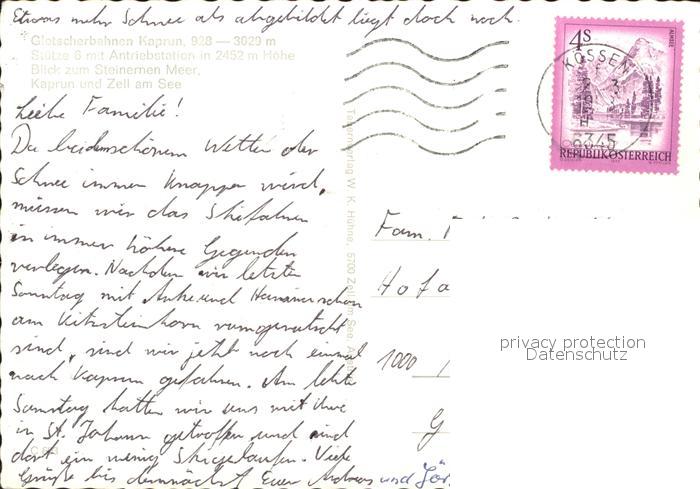 Etwas mehr Schnee als abgebildet liegt doch noch.
Gletscherbahnen Kaprun, 928 — 3029 m
Stütze 6 mit Antriebstation in 2452 m Höhe
Blick zum Steinernen Meer,
Kaprun und Zell am See
Liebe Familie!
Da bei dem schönem Wetter der
Schnee immer knapper wird,
müssen wir das Skifahren
in immer höhere Gegenden
verlegen. Nachdem wir letzten
Sonntag mit Anke und schon
am Kitzsteinhorn rumgerutscht
sind, sind wir jetzt noch einmal
nach Kaprun gefahren. Am letzten
Samstag hatten wir uns mit ihr
in St. Johann getroffen und sind
dort ein wenig Ski gelaufen. Viele
Grüße bis demnächst Euer Andreas und Jör
W. K. Hühne, 5700 Zell am See
4 S
ALMSEE
REPUBLIK ÖSTERREICH
KÖSSEN
6345
Fam.
Hofa
1000
G
privacy protection
Datenschutz